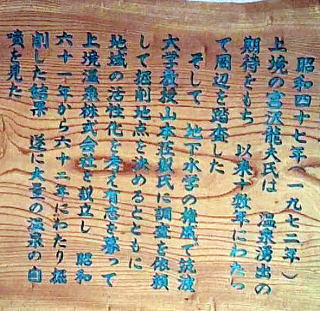 昭和四十七年(一九七二年)
上境の宮沢龍大氏は 温泉湧出の
期待をもち 以来十数年にわたっ
て周辺を踏査した
そして 地下水学の権威で筑波
大学教授山本荘毅氏に調査を依頼
して掘削地点を決めるとともに
地域の活性化を考え有志を募って
上境温泉株式会社を設立し 昭和
六十一年から六十二年にわたり掘
削した結果 遂に大量の温泉の自
噴を見た